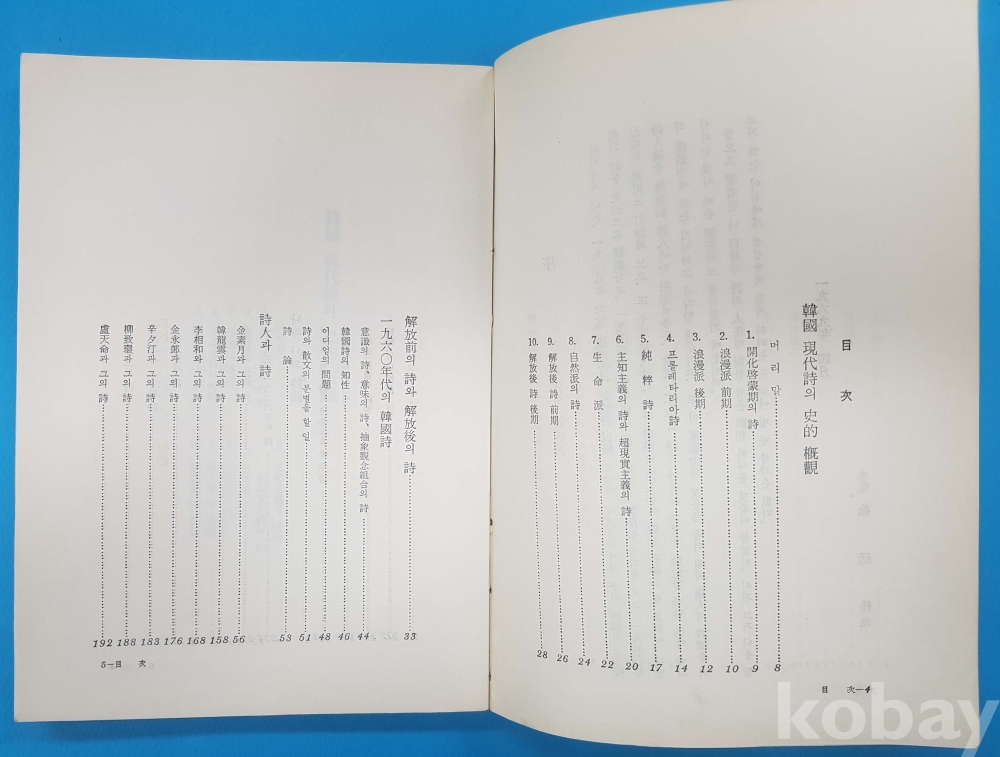 目 次
韓國 現代詩의 史的 槪觀
머 리 말 8
1. 開化啓蒙期의 詩 9
2. 浪漫派 前期 10
3. 浪漫派 後期 12
4. 프롤레타리아詩 14
5. 純 粹 詩 17
6. 主知主義의 詩와 超現實主義의 詩 20
7. 生 命 派 22
8. 自然派의 詩 24
9. 解放後 詩 前期 26
10. 解放後 詩 後期 28
目 次—4
解放前의 詩와 解放後의 詩 33
一九六○年代의 韓國詩
意識의 詩、意味의 詩、抽象觀念組合의 詩 44
韓國詩의 知性 46
이디엄의 問題 48
詩와 散文의 분별을 할 일 51
詩 論 53
詩人과 詩
金素月과 그의 詩 56
韓龍雲과 그의 詩 158
李相和와 그의 詩 168
金永郎과 그의 詩 176
辛夕汀과 그의 詩 183
柳致環과 그의 詩 188
盧天命과 그의 詩 192
5—目 次
kobay